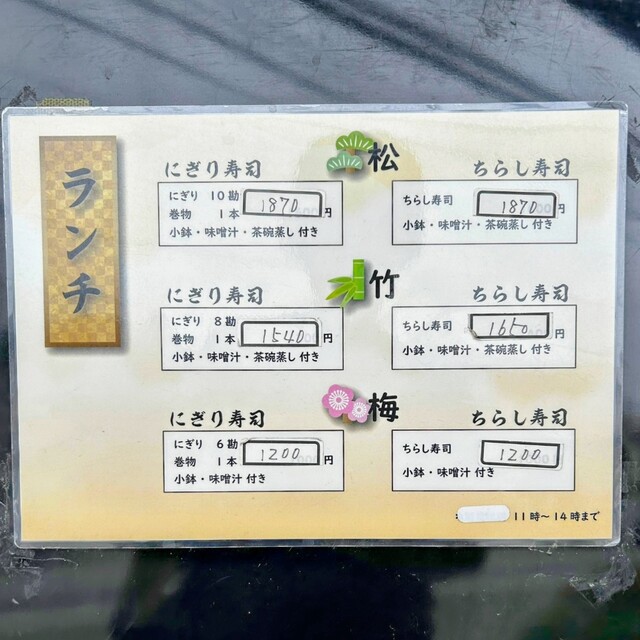 ランチ
松
にぎり寿司
にぎり 10勘 1870円
巻物 1本
小鉢・味噌汁・茶碗蒸し付き
ちらし寿司
ちらし寿司 1870円
小鉢・味噌汁・茶碗蒸し付き
竹
にぎり寿司
にぎり 8勘 1540円
巻物 1本
小鉢・味噌汁・茶碗蒸し付き
ちらし寿司
ちらし寿司 1650円
小鉢・味噌汁・茶碗蒸し付き
梅
にぎり寿司
にぎり 6勘 1200円
巻物 1本
小鉢・味噌汁付き
ちらし寿司
ちらし寿司 1200円
小鉢・味噌汁付き
11時〜14時まで